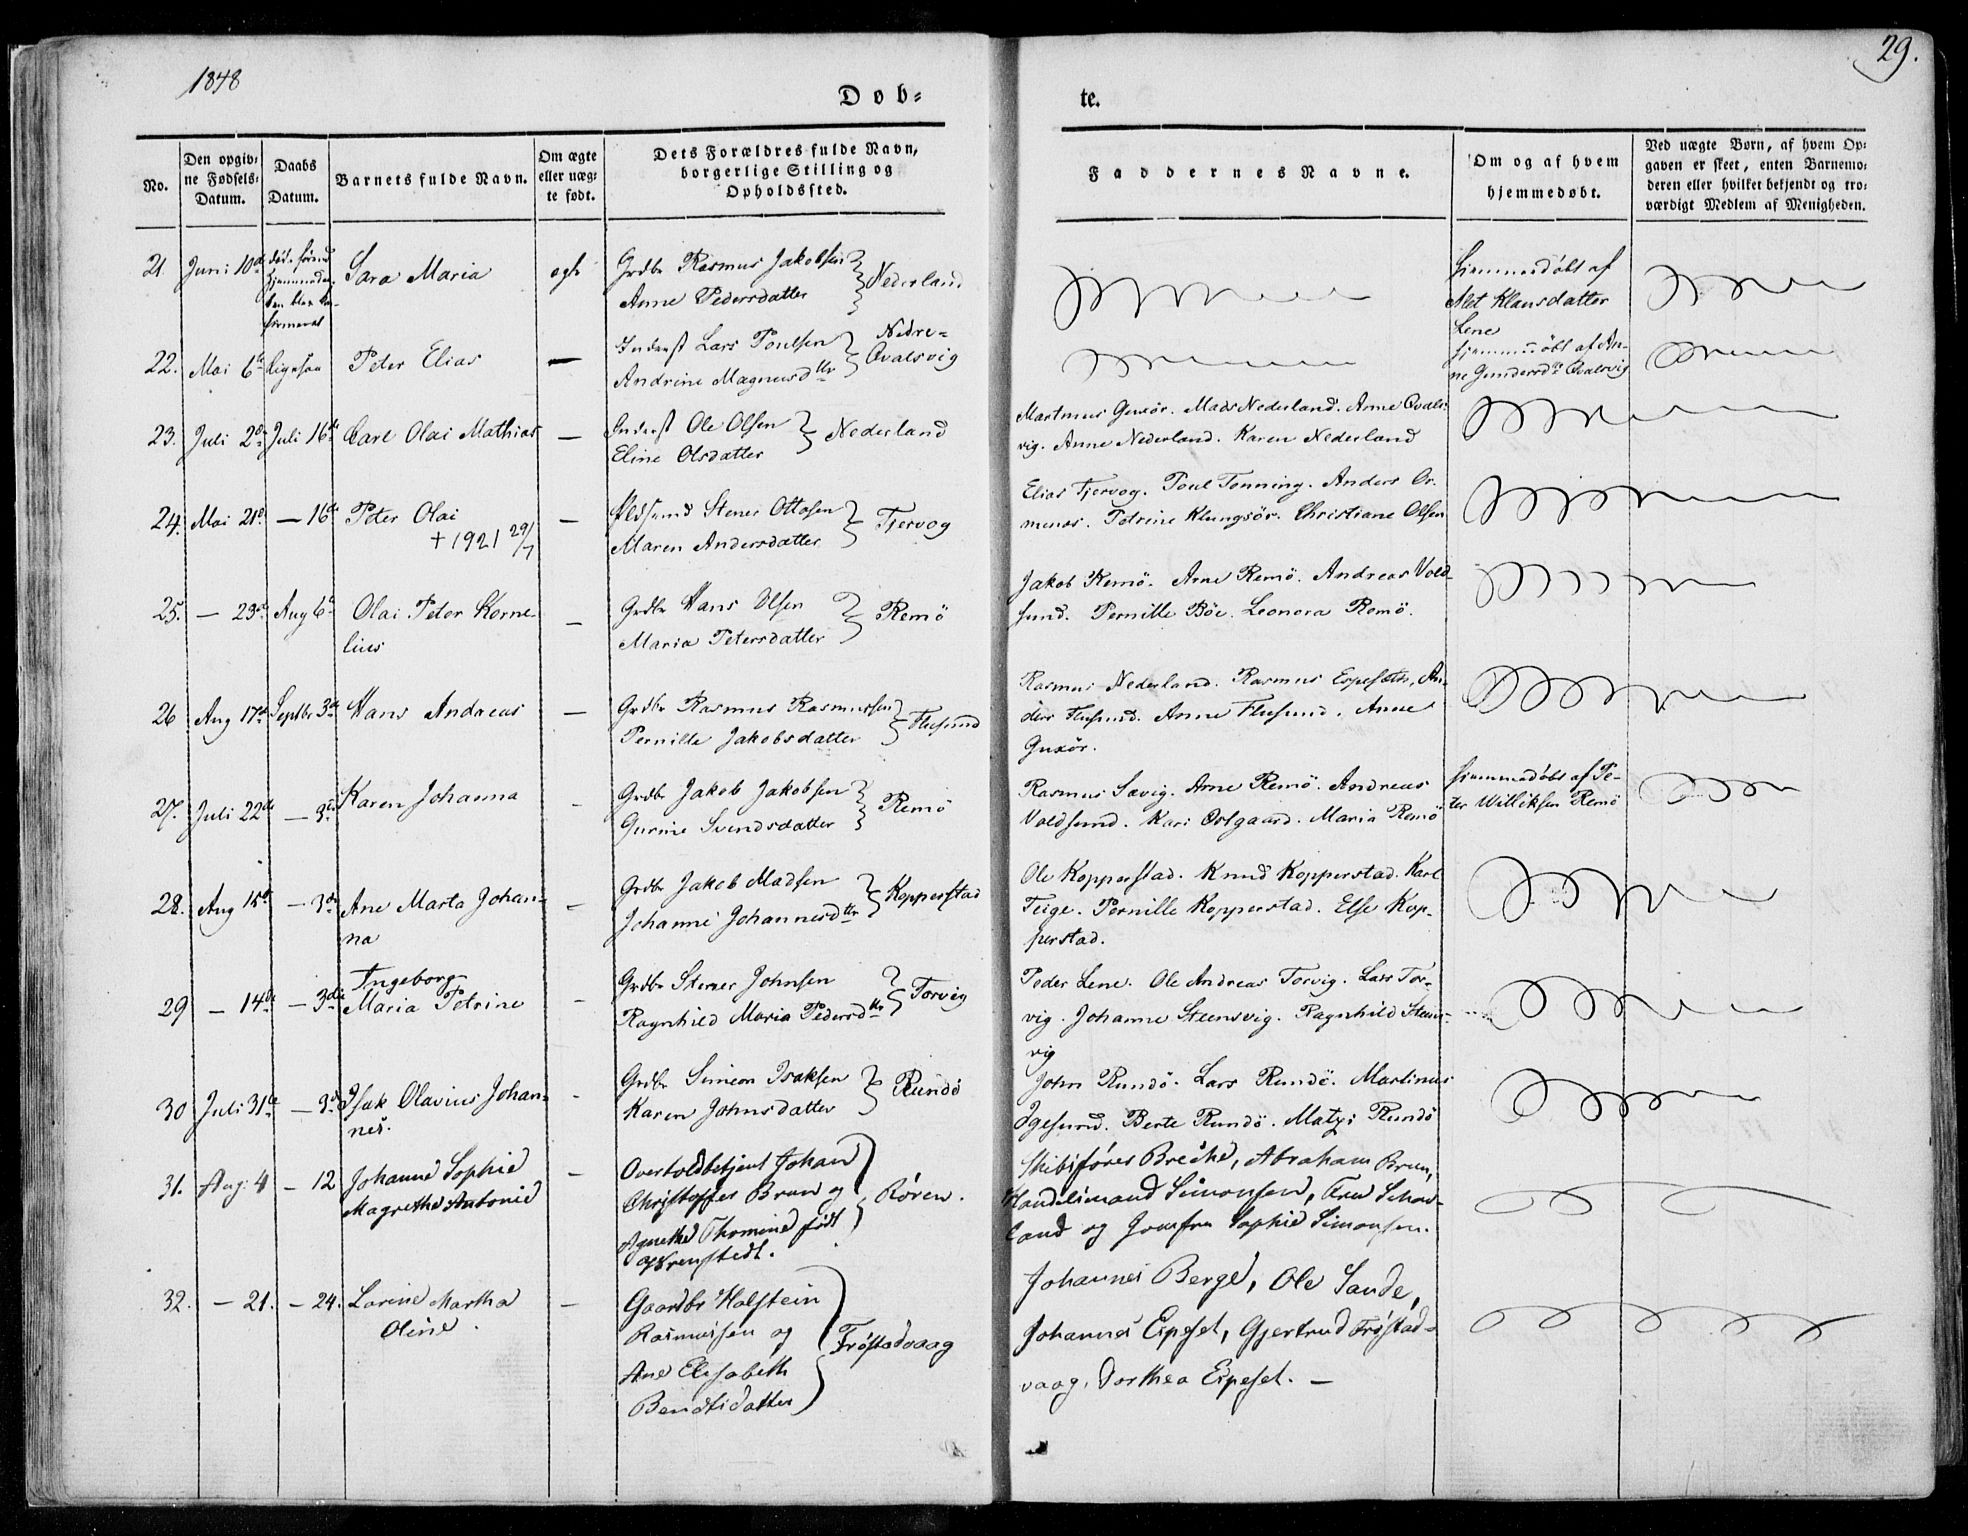 1848
29.
Døb=
te.
No.
Den opgiv=
ne Fødsels=
Datum.
Daabs
Datum.
Barnets fulde Navn.
Om ægte
eller uæg=
te født.
Dets Forældres fulde Navn,
borgerlige Stilling og
Opholdssted.
Faddernes Navne.
Om og af hvem
hjemmedøbt.
Ved uægte Børn, af hvem Op=
gaven er skeet, enten Barnemo=
deren eller hvilket bekjendt og tro=
værdigt Medlem af Menigheden.
21. Juni 10de død førend Sara Maria ægte Grdbr Rasmus Jakobsen
Anne Pedersdatter } Nederland
hjemmedøbt af
Alet Klausdatter
Lene
22. Mai 6te ligesaa Peter Elias — Inderst Lars Poulsen
Andrine Magnusdtr } Nedre=
Qvalsvig
hjemmedøbt af An-
ne Gundersdr Qvalsvig
23. Juli 2de Juli 16de Carl Olai Mathias — Inderst Ole Olsen
Eline Olsdatter } Nederland
Martinus Guxör. Mads Nederland. Anne Qvals-
vig. Anne Nederland. Karen Nederland
24. Mai 21de — 16de Peter Olai — Stener Ottosen
+ 1921 29/7
Maren Andersdatter } Tjervog
Elias Tjervog. Poul Tonning. Anders Or-
menes. Petrine Klungsör. Christiane Olsen
25. — 23de Aug 6te Olai Peter Korne-
lius — Grdbr Hans Olsen
Maria Petersdatter } Remö
Jakob Remö. Arne Remö. Andreas Vold-
sund. Pernille Böe. Leonora Remö.
26 Aug 17de Septbr 3de Hans Andreas — Grdbr Rasmus Rasmussen
Pernille Jakobsdatter } Flusund
Rasmus Nederland. Rasmus Espesæth, An-
ders Flusund. Anne Flusund. Anne
Guxör.
27. Juli 22de — 3de Karen Johanna — Grdbr Jakob Jakobsen
Gurine Svendsdatter } Remö
Rasmus Sævig. Arne Remö. Andreas
Voldsund. Kari Ostgaard. Maria Remö
hjemmedøbt af Pe-
ter Williksen Remö
28. Aug 15de — 3de Ane Marta Johan-
na — Grdbr Jakob Madsen
Johanne Johannesdtr } Kopperstad
Ole Kopperstad. Knud Kopperstad. Karl
Teige. Pernille Kopperstad. Else Kop-
perstad.
29 — 14de — 3die Ingeborg
Maria Petrine — Grdbr Stener Johnsen
Ragnhild Maria Pedersdtr } Torvig
Peder Lene. Ole Andreas Torvig. Lars Tor-
vig. Johanne Steensvig. Ragnhild Steens-
vig
30 Juli 31te — 3de Isak Olavius Johan-
nes. — Grdbr Simeon Isaksen
Karen Johnsdatter } Rundö
John Rundö. Lars Rundö. Martinus
Igesund. Berte Rundö. Matzi Rundö
31. Aug: 4 — 12 Johanne Sophie
Magrethe Antonie — Overtoldbetjent Johan
Christoffer Brun og
Agnethe Thomine født
} Rören.
Skibsfører Breche, Abraham Brun,
Handelsmand Simonsen, Frue
og Jomfru Sophie Simonsen.
32. — 21. — 24. Lorine Martha
Oline. — Gaardbr Holstein
Rasmussen og
Ane Elisabeth
Bendtsdatter } Frøstadvaag
Johannes Berge, Ole Sande,
Johannes Espeset, Gjertrud Frøstad-
vaag, Dorthea Espeset. —